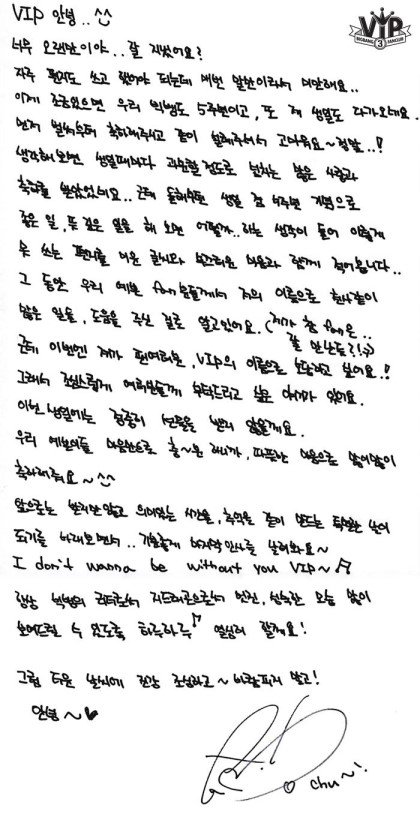 VIP 안녕.. ^^
VIP
BIGBANG FANCLUB
3
너무 오랜만이야.. 잘 지냈어요?
자주 편지도 쓰고 했어야 되는데 매번 말뿐이라서 미안해요..
이제 조금있으면 우리 빅뱅도 5주년이고, 또 제 생일도 다가오네요..
먼저 벌써부터 축하해주시고 같이 설레주셔서 고마워요~ 정말..!
생각해보면 생일때마다 과분할정도로 넘치는 많은 사랑과
축하를 받았었네요.. 근데 올해부턴 생일 겸 5주년 기념으로
좋은 일, 뜻 깊은 일을 해 보면 어떨까.. 라는 생각이 들어 이렇게
못 쓰는 편지를 미운 글씨와 부끄러운 마음과 함께 적어봅니다..
그 동안 우리 예쁜 fan분들께서 저의 이름으로 한사같이
많은 일을, 도움을 주신 걸로 알고있어요. (제가 참 fan은.. 잘 만난듯?!;))
근데 이번엔 제가 팬여러분, VIP의 이름으로 보답하고 싶어요!!
그래서 조심스럽게 여러분들께 부탁드리고 싶은 이야기가 있어요.
이번 생일에는 정중히 선물을 받지 않을게요.
우리 예쁜이들 마음만으로 충~분 하니까, 따뜻한 마음으로 많이많이
축하해줘요~ ^^
앞으로는 받지만 않고 의미있는 시간을, 추억을 같이 만드는 특별한 날이
되기를 바래보면서.. 기분좋게 마지막인사를 날려봐요~
I don't wanna be without you VIP~♬
항상 빅뱅의 리더로서 지드래곤으로서 멋진, 성숙한 모습 많이
보여드릴 수 있도록 하루하루♪ 열심히 할게요!
그럼 더운 날씨에 건강 조심하고~ 바람피지 말고!
안녕~♥
chu~!